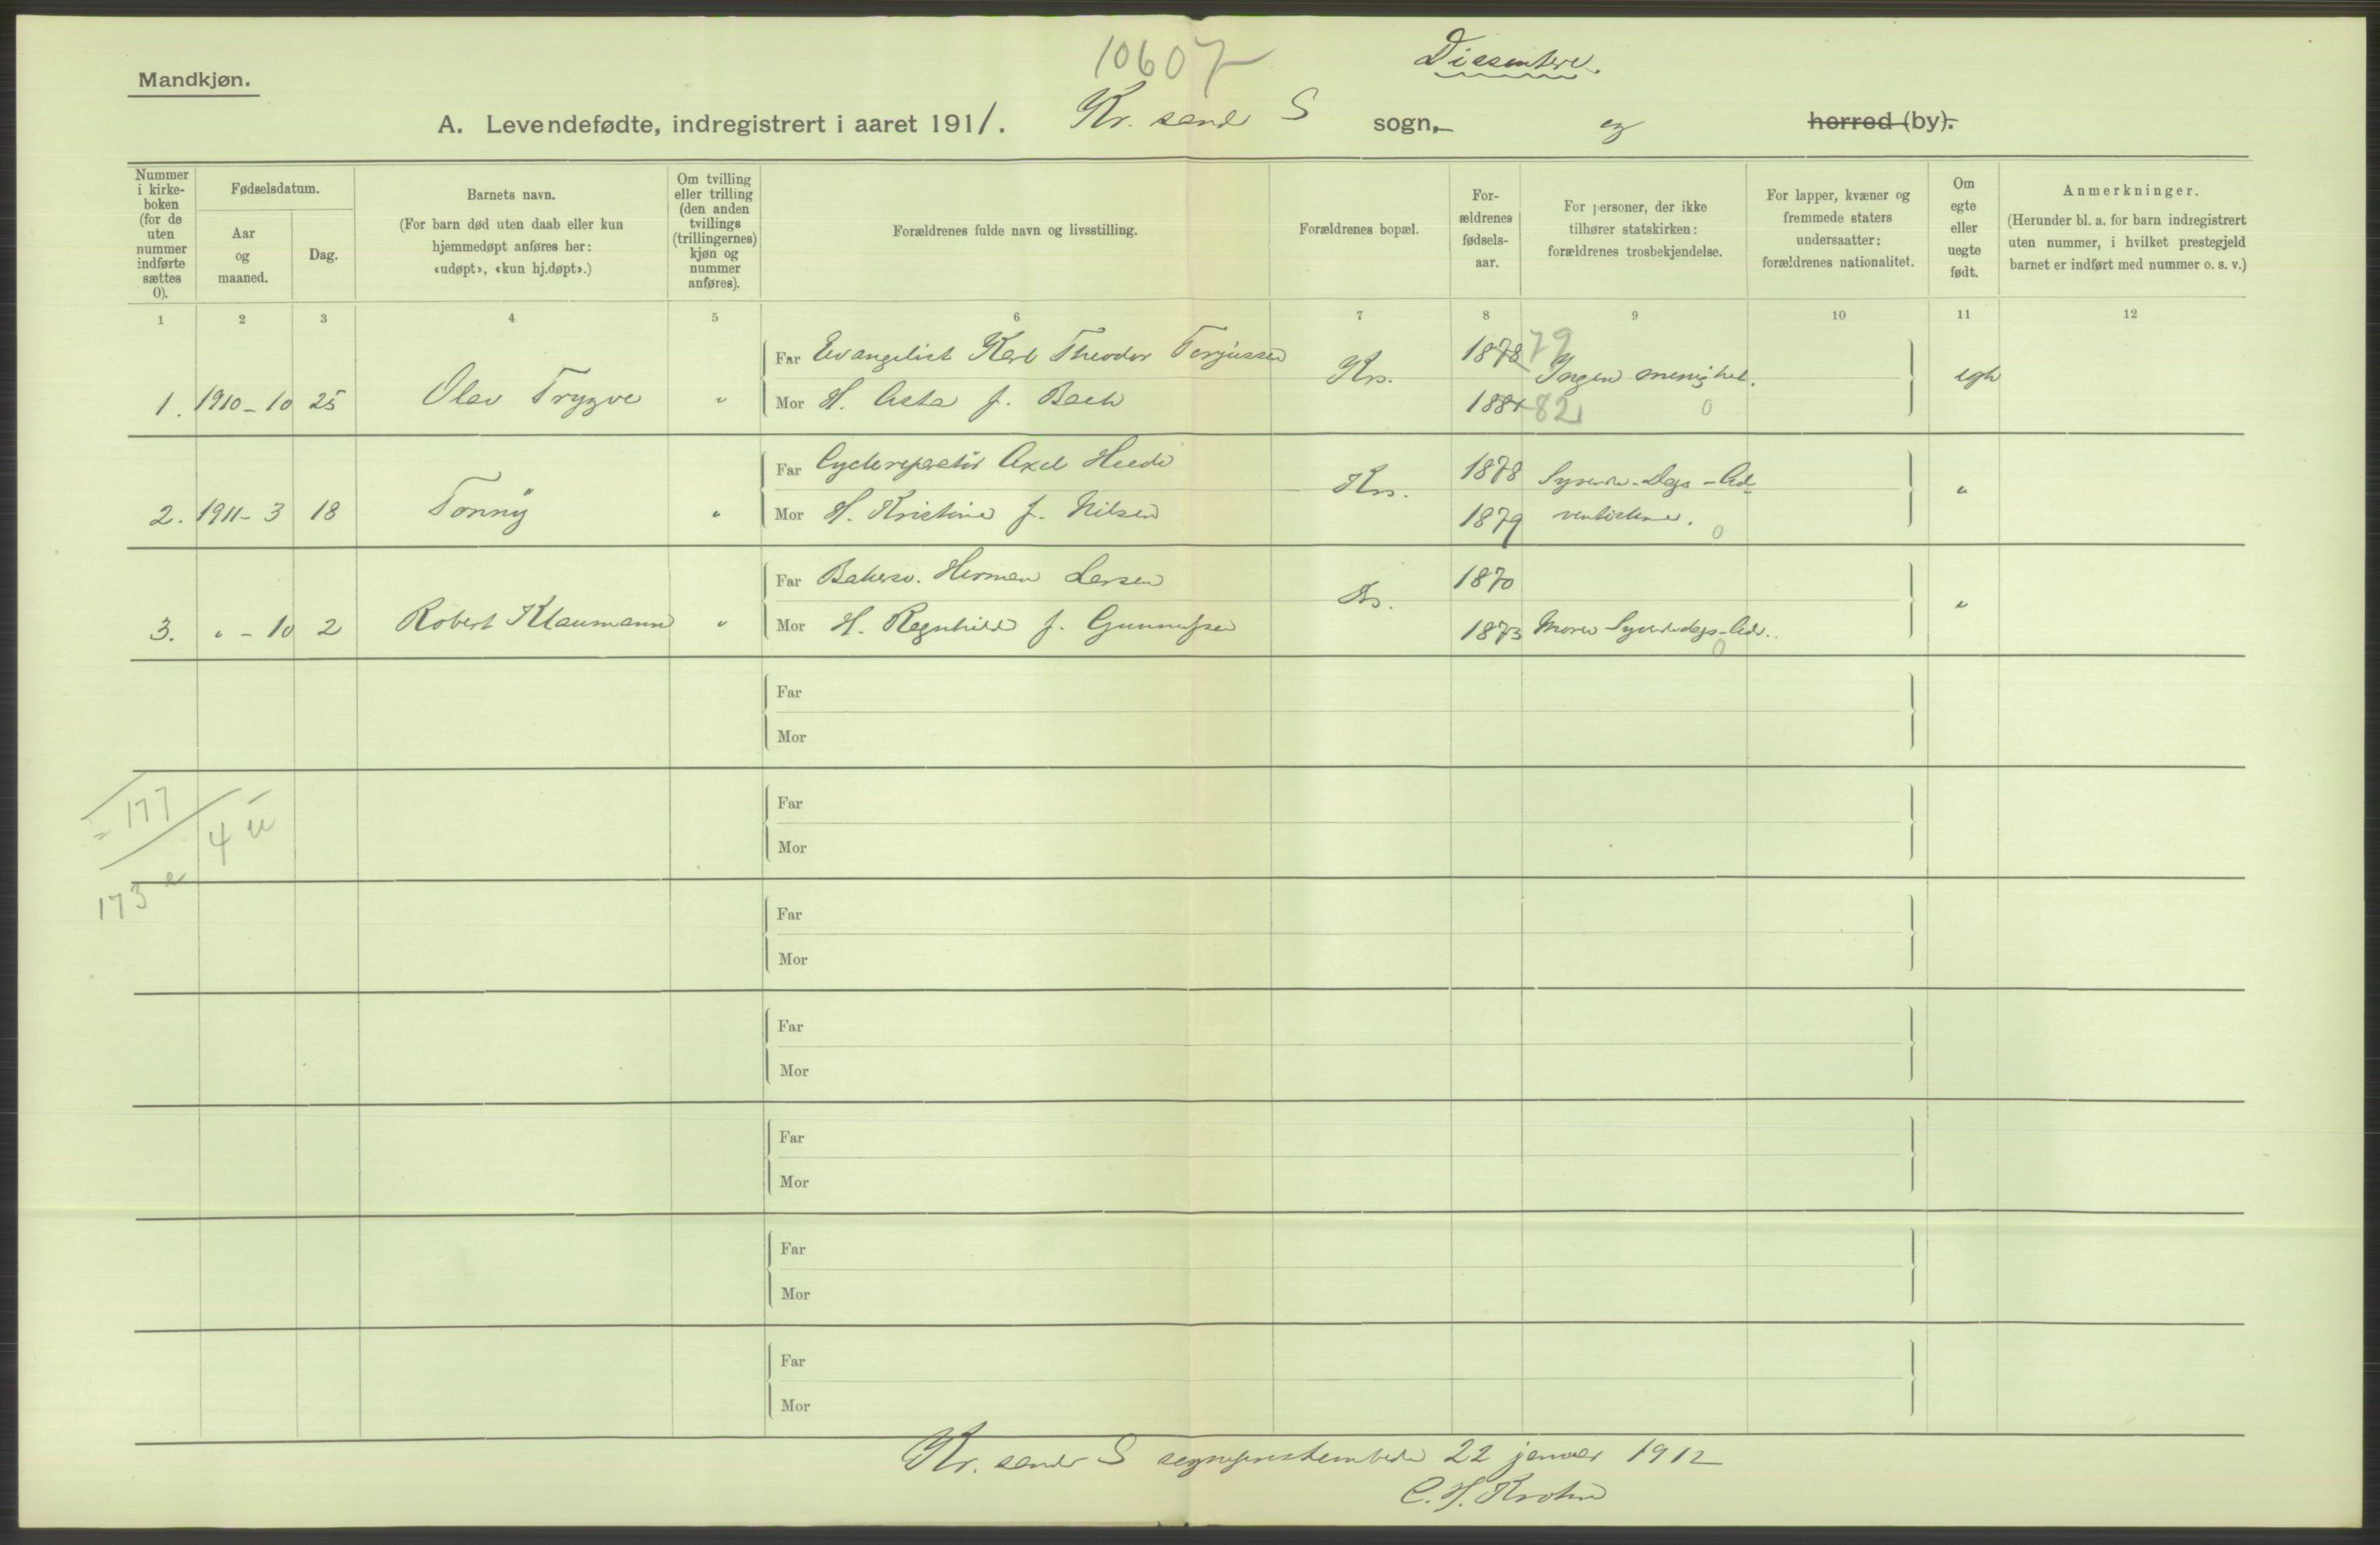 10607
Dissentere.
Mandkjøn.
A. Levendefødte, indregistrert i aaret 1911. Kr.sand S sogn, og herred (by).
Nummer i kirke-boken (for de uten nummer indførte sættes 0).
Fødselsdatum.
Aar og maaned.
Dag.
Barnets navn.
(For barn død uten daab eller kun hjemmedøpt anføres her: «udøpt», «kun hj.døpt».)
Om tvilling eller trilling (den anden tvillings (trillingernes) kjøn og nummer anføres).
Forældrenes fulde navn og livsstilling.
Forældrenes bopæl.
For-ældrenes fødsels-aar.
For personer, der ikke tilhører statskirken: forældrenes trosbekjendelse.
For lapper, kvæner og fremmede staters undersaatter: forældrenes nationalitet.
Om egte eller uegte født.
Anmerkninger.
(Herunder bl. a. for barn indregistrert uten nummer, i hvilket prestegjeld barnet er indført med nummer o. s. v.)
1 2 3 4 5 6 7 8 9 10 11 12
Far Evangelist Karl Theodor Terjussen 1878 79
1. 1910-10 25 Olav Trygve " Krs. Ingen menighet. egte
Mor H. Asta f. Bach 1881 82 0
Far Cyclereparatör Axel Heede 1878 Syvende-Dags-Ad-
2. 1911-3 18 Tonny " Krs. "
Mor H. Kristine f. Nilsen 1879 ventisterne. 0
Far Bakersv. Herman Larsen 1870
3. " - 10 2 Robert Klaumann " Ks. "
Mor H. Ragnhild f. Gunnufsen 1873 Moren Syvendedags-Adv. 0
Far
Mor
= 177
4 u
Far
Mor
173 e
Far
Mor
Far
Mor
Far
Mor
Far
Mor
Far
Mor
Kr.sands S sogneprestembede 22 januar 1912
C. H. Krohn